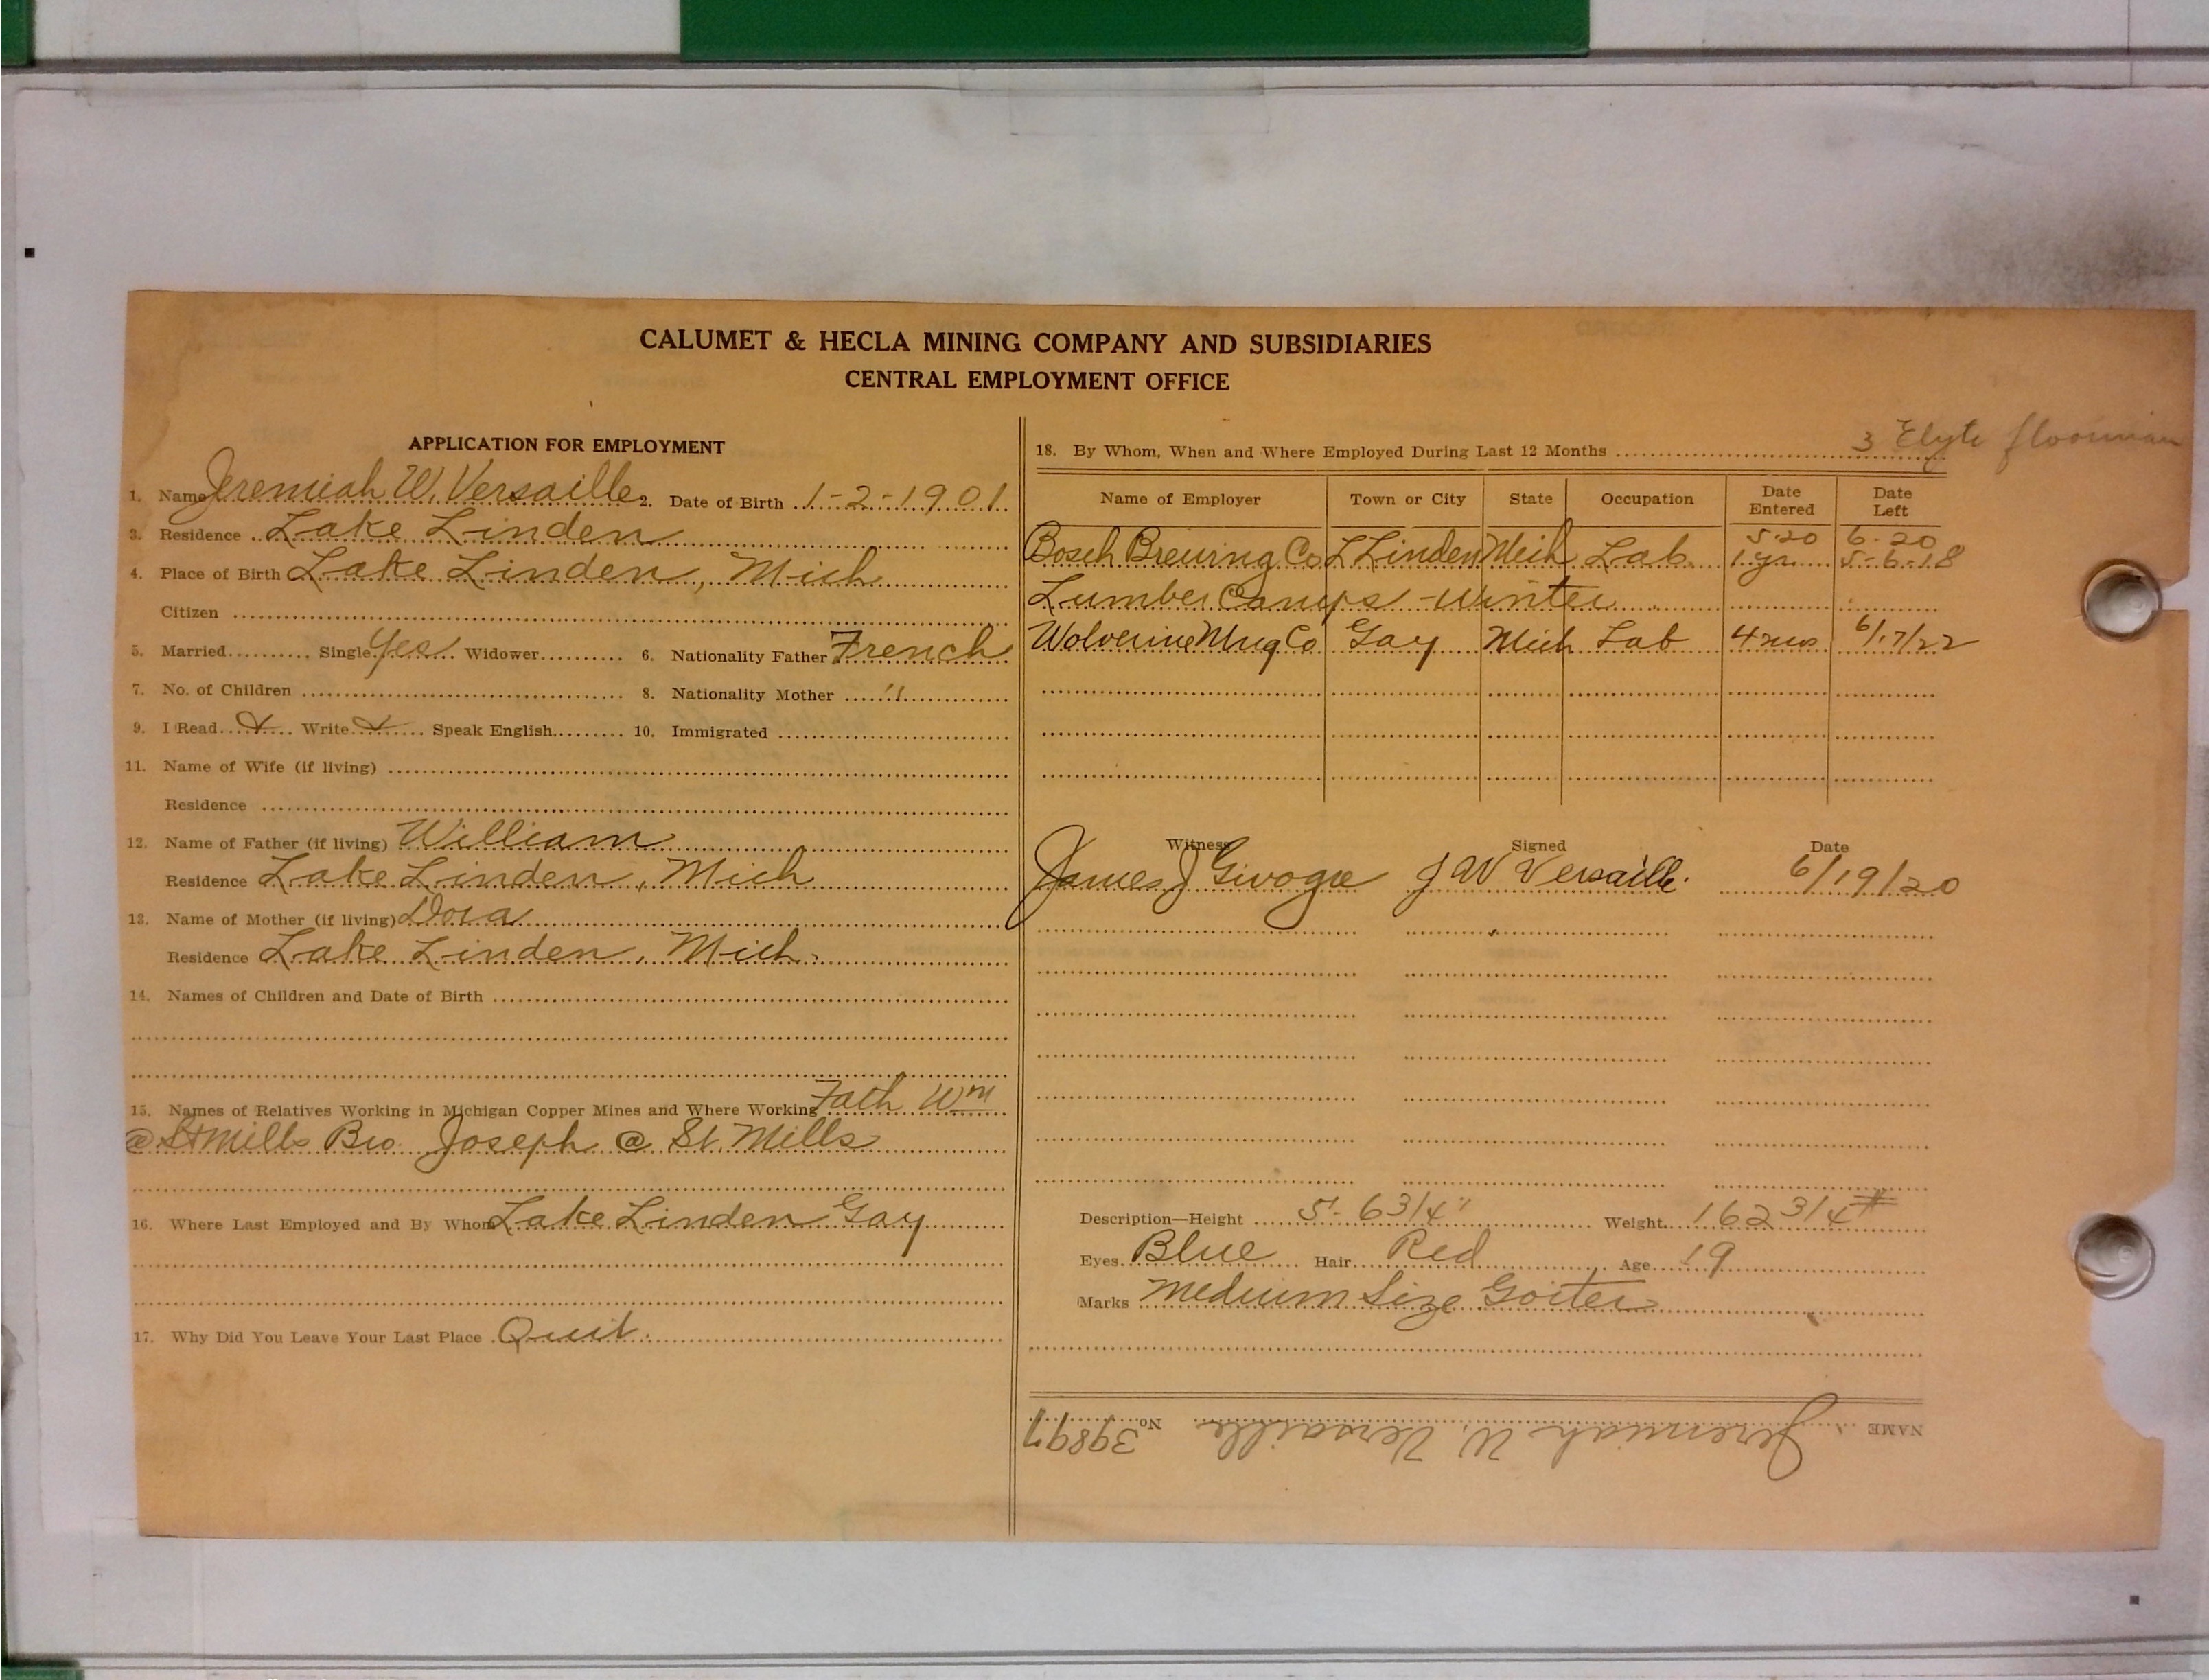 CALUMET & HECLA MINING COMPANY AND SUBSIDIARIES
CENTRAL EMPLOYMENT OFFICE
APPLICATION FOR EMPLOYMENT
1. Name Jeremiah W. Versaille 2. Date of Birth 1-2-1901
3. Residence Lake Linden
4. Place of Birth Lake Linden, Mich
Citizen
5. Married Single Yes Widower 6. Nationality Father French
7. No. of Children 8. Nationality Mother "
9. I Read Write Speak English 10. Immigrated
11. Name of Wife (if living)
Residence
12. Name of Father (if living) William
Residence Lake Linden, Mich
13. Name of Mother (if living) Dora
Residence Lake Linden, Mich.
14. Names of Children and Date of Birth
15. Names of Relatives Working in Michigan Copper Mines and Where Working Fath Wm
@ St Mills Bro. Joseph @ St. Mills
16. Where Last Employed and By Whom Lake Linden Gay
17. Why Did You Leave Your Last Place Quit.
3 Elyte floorman
18. By Whom, When and Where Employed During Last 12 Months
Name of Employer Town or City State Occupation Date Entered Date Left
5-20 6-20
Bosch Brewing Co L Linden Mich Lab. 1 yr. 5-6-18
Lumber Camps - Winter
Wolverine Mng Co Gay Mich Lab 4 mos 6/17/22
Witness Signed Date
James J J W Versaille. 6/19/20
Description—Height 5'- 6 3/4" Weight 162 3/4 #
Eyes Blue Hair Red Age 19
Marks Medium Size Goiter
NAME Jeremiah W. Versaille No. 39897